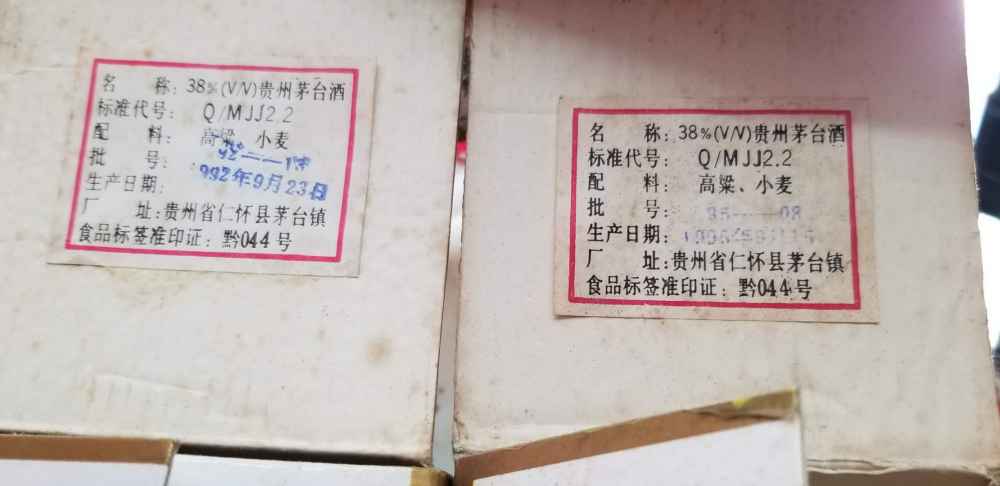 名 称：38%(V/V)贵州茅台酒
标准代号： Q/MJJ2.2
配 料： 高粱、小麦
批 号：
生产日期： 992年9月23日
厂 址：贵州省仁怀县茅台镇
食品标签准印证：黔044号
名 称：38%(V/V)贵州茅台酒
标准代号： Q/MJJ2.2
配 料： 高粱、小麦
批 号：
生产日期：
厂 址：贵州省仁怀县茅台镇
食品标签准印证：黔044号